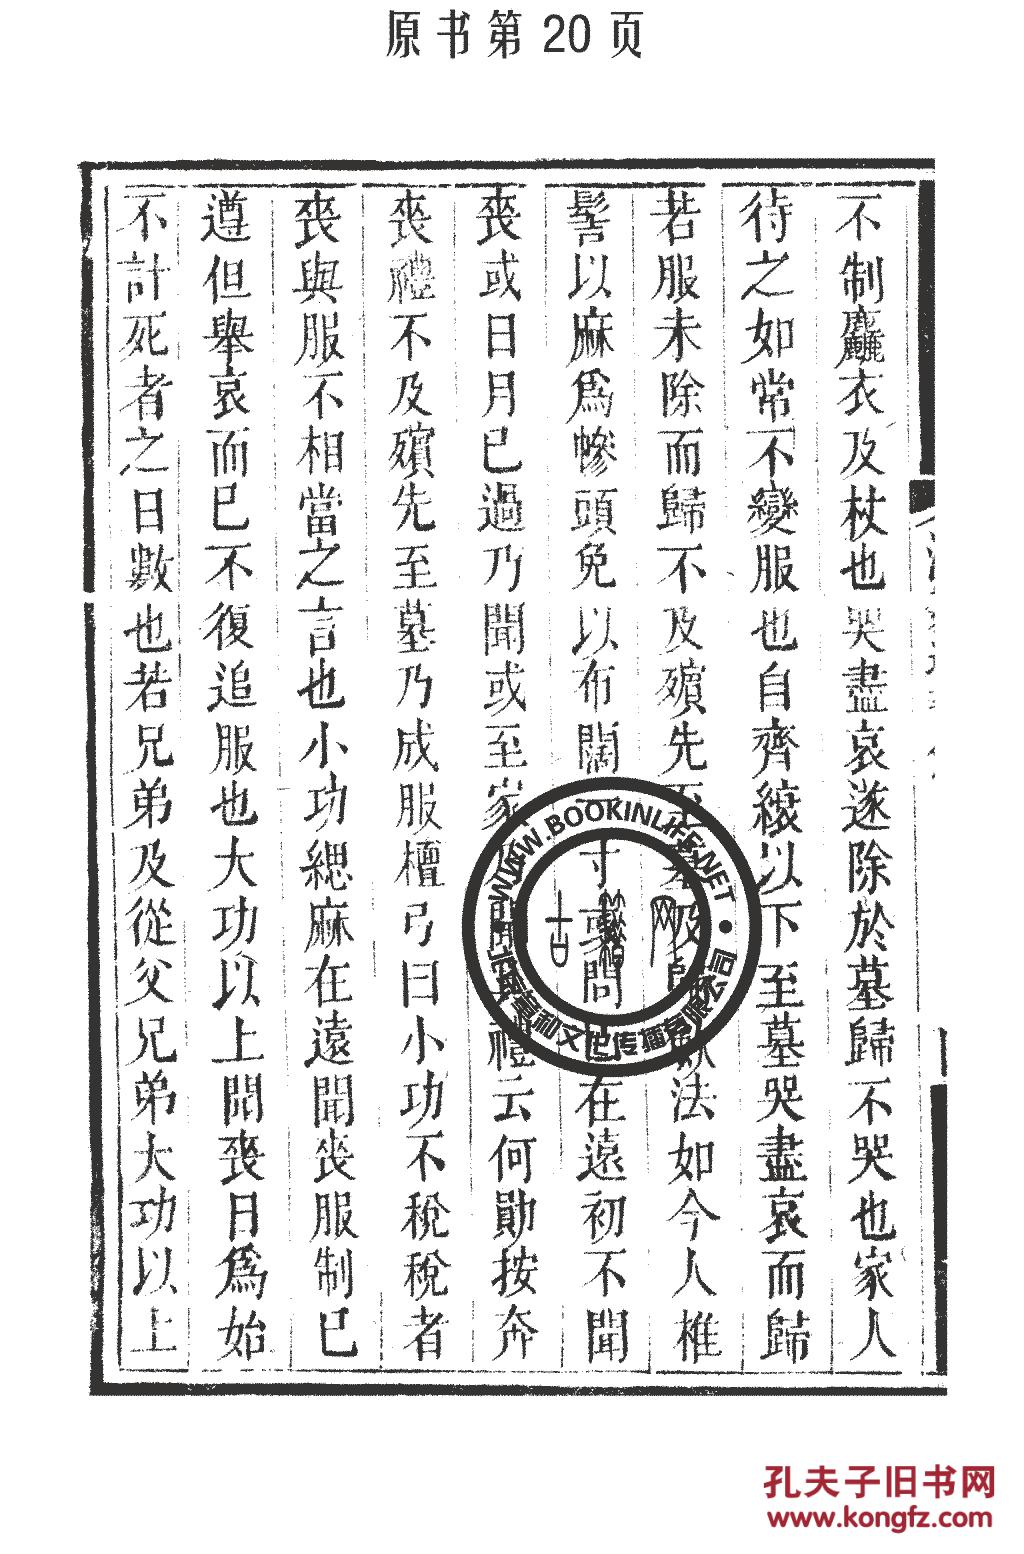 原书第20页
不制麤衣及杖也哭盡哀遂除於墓歸不哭也家人
待之如常不變服也自齊縗以下至墓哭盡哀而歸
若服未除而歸不及殯先至墓及歸法如今人椎
髻以麻爲幓頭免以布闊寸問在遠初不聞
喪或日月已過乃聞或至家禮云何勛按奔
喪禮不及殯先至墓乃成服檀弓曰小功不稅稅者
喪與服不相當之言也小功緦麻在遠聞喪服制已
遵但舉哀而已不復追服也大功以上聞喪日爲始
不計死者之日數也若兄弟及從父兄弟大功以上
WWW.BOOKINLIFE.NET
古籍网
孔夫子旧书网
www.kongfz.com